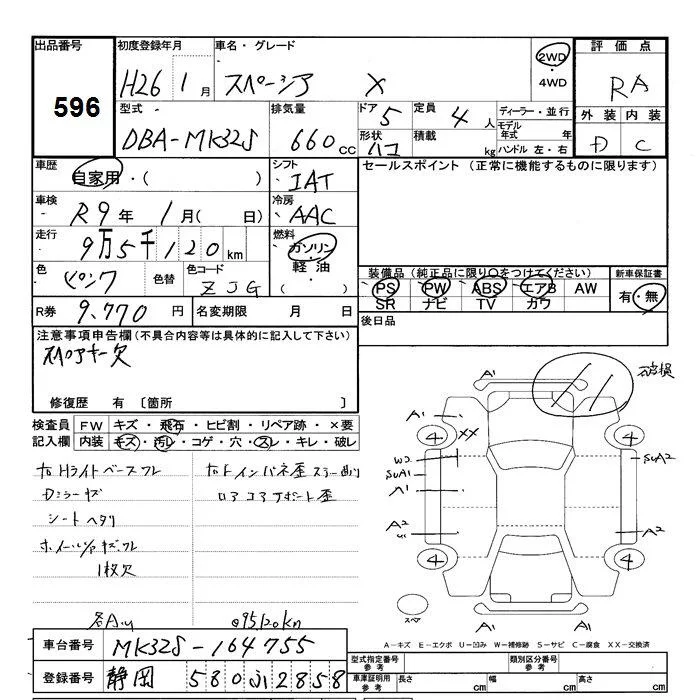 出品番号
596
初度登録年月
H26 1月
車名・グレード
スペーシア X
2WD
・
4WD
評価点
RA
外装 内装
D C
型式
DBA-MK32S
排気量
660cc
ドア 5
定員 4人
形状 ハコ
積載 kg
ディーラー・並行
モデル年式 年
ハンドル 左・右
車歴
自家用・( )
シフト
IAT
セールスポイント (正常に機能するものに限ります)
車検
R9年 1月( 日)
冷房
AAC
走行
9万5千120km
燃料
ガソリン・
軽油
( )
色
ピンク
色替
色コード
ZJG
装備品(純正品に限り○をつけてください)
PS PW ABS エアB AW
SR ナビ TV カワ
新車保証書
有・無
R券 9,770円
名変期限 月 日
後日品
注意事項申告欄(不具合内容等は具体的に記入して下さい)
スペアキー欠
修復歴 有 〔箇所 〕
検査員記入欄
FW キズ・飛石・ヒビ割・リペア跡・×要
内装 キズ・汚レ・コゲ・穴・スレ・キレ・破レ
シートヘタリ
1枚欠
各AU
@95120km
破損
A1 A1
A1 XX
4 4
W2
SUA1
A1
SUA2
A2
A2
4 4
スペア
A1 A1
A-キズ E-エクボ U-凹み W-補修跡 S-サビ C-腐食 XX-交換済
車台番号 MK32S-164755
登録番号 静岡 580ふ2858
型式指定番号
参考
類別区分番号
参考
車庫証明用
参考
長さ cm
幅 cm
高さ cm